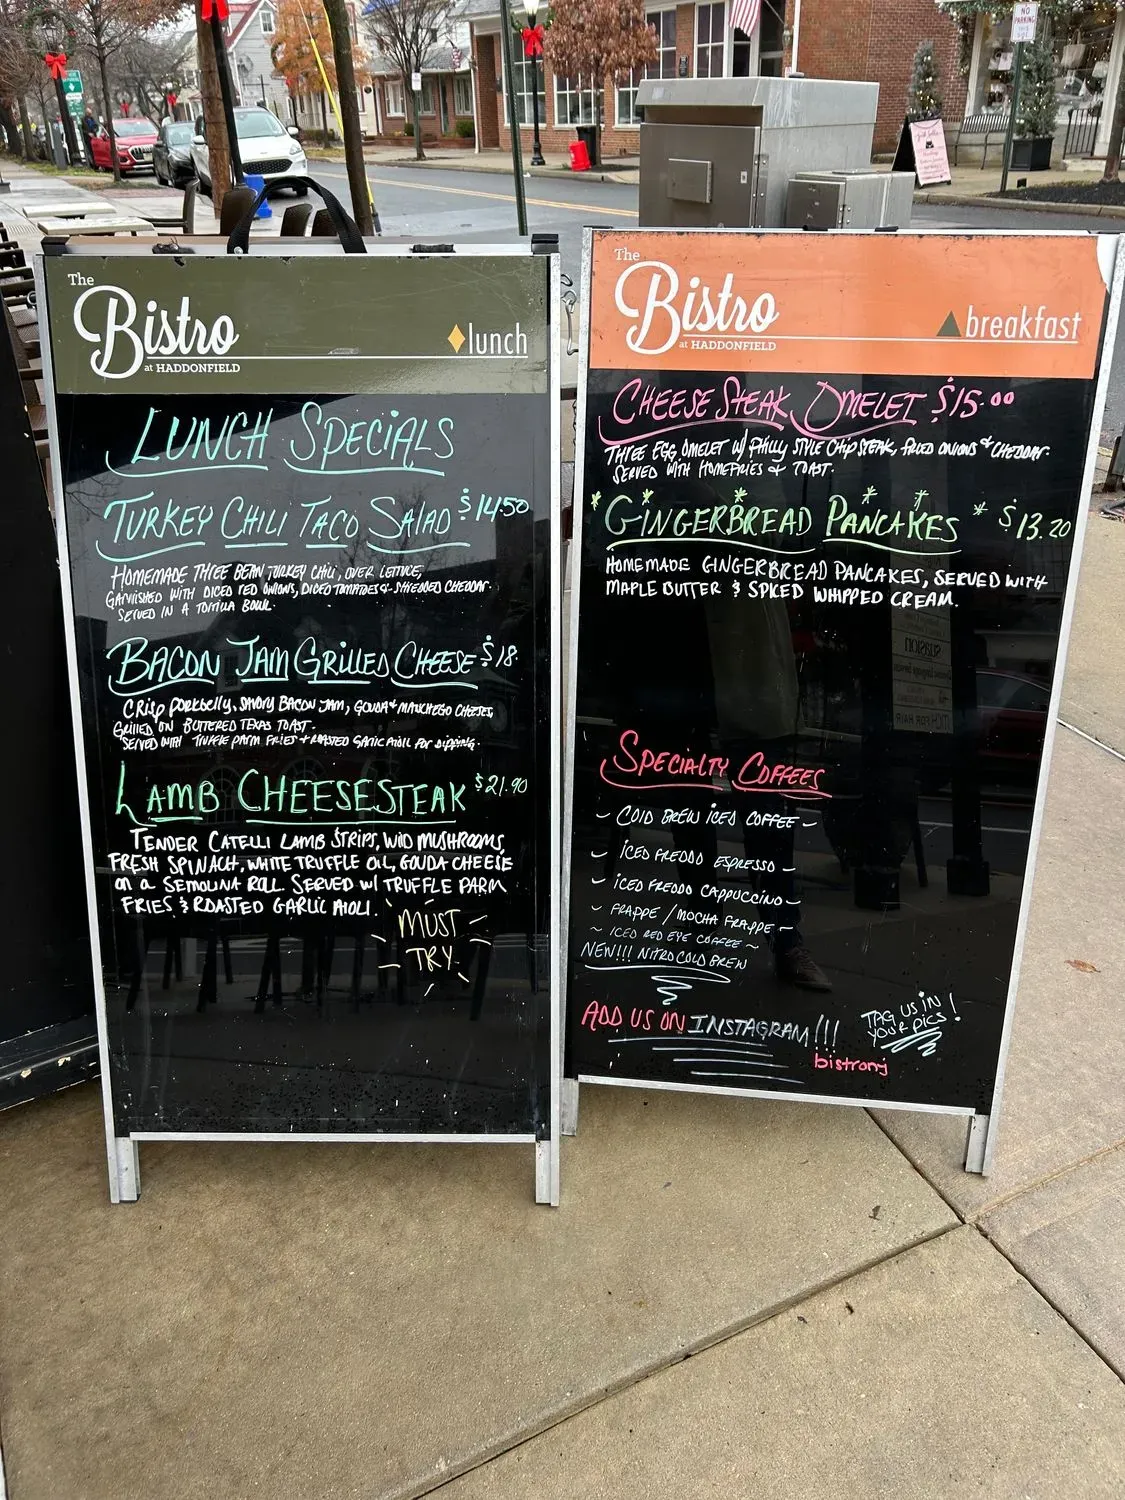 The
Bistro
at HADDONFIELD
lunch
LUNCH SPECIALS
TURKEY CHILI TACO SALAD $14.50
HOMEMADE THREE BEAN TURKEY CHILI, OVER LETTUCE,
GARNISHED WITH DICED RED ONIONS, DICED TOMATOES & SHREDDED CHEDDAR.
SERVED IN A TORTILLA BOWL.
BACON JAM GRILLED CHEESE $18.
CRISP PORKBELLY, SAVORY BACON JAM, GOUDA & MANCHEGO CHEESES,
GRILLED ON BUTTERED TEXAS TOAST.
SERVED WITH TRUFFLE PARM FRIES & ROASTED GARLIC AIOLI FOR DIPPING.
LAMB CHEESESTEAK $21.90
TENDER CATELLI LAMB STRIPS, WILD MUSHROOMS,
FRESH SPINACH, WHITE TRUFFLE OIL, GOUDA CHEESE
ON A SEMOLINA ROLL. SERVED W/ TRUFFLE PARM
FRIES & ROASTED GARLIC AIOLI.
MUST
TRY
The
Bistro
at HADDONFIELD
breakfast
CHEESE STEAK OMELET $15.00
THREE EGG OMELET W/ PHILLY STYLE CHIP STEAK, FRIED ONIONS & CHEDDAR.
SERVED WITH HOMEFRIES & TOAST.
* GINGERBREAD PANCAKES * $13.20
HOMEMADE GINGERBREAD PANCAKES, SERVED WITH
MAPLE BUTTER & SPICED WHIPPED CREAM.
SPECIALTY COFFEES
~ COLD BREW ICED COFFEE ~
~ ICED FREDDO ESPRESSO ~
~ ICED FREDDO CAPPUCCINO ~
~ FRAPPE / MOCHA FRAPPE ~
~ ICED RED EYE COFFEE ~
NEW!!! NITRO COLD BREW
ADD US ON INSTAGRAM!!!
bistronj
TAG US IN
YOUR PICS!
NO
PARKING